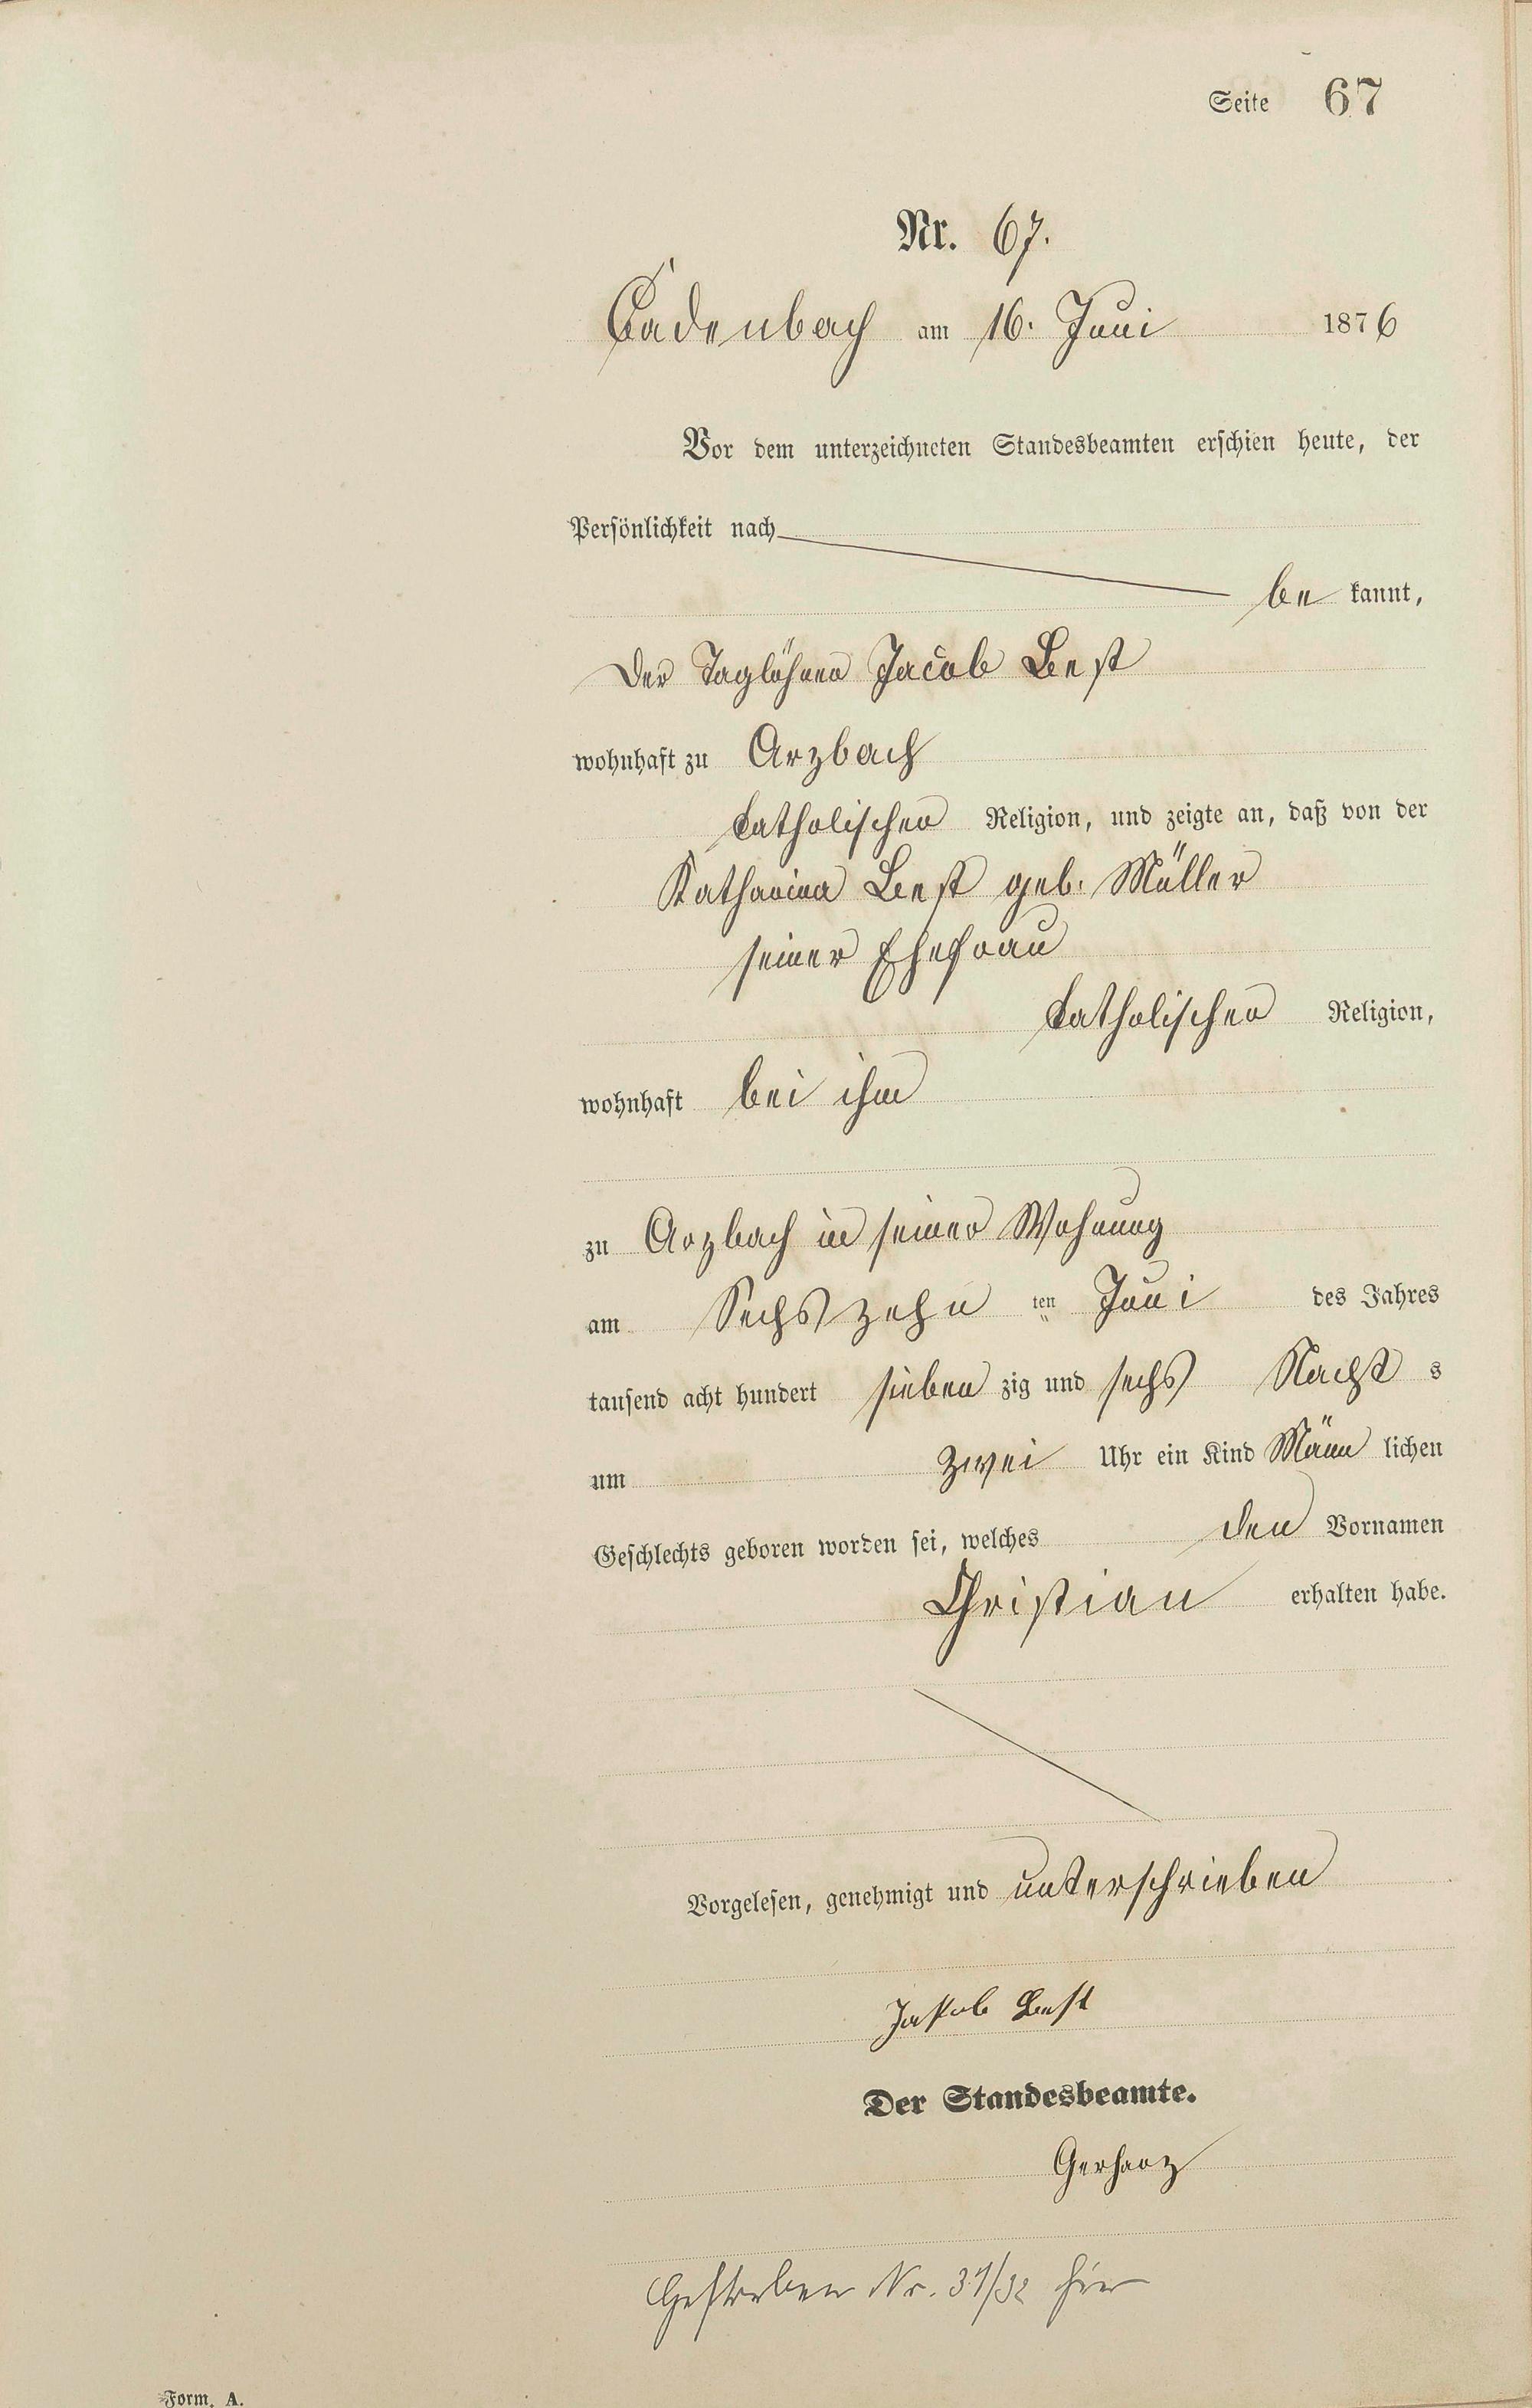 Seite 67
Nr. 67.
Cadenbach am 16. Juni 1876
Vor dem unterzeichneten Standesbeamten erschien heute, der
Persönlichkeit nach
be kannt,
Der Taglöhner Jacob Best
wohnhaft zu Arzbach
katholischer Religion, und zeigte an, daß von der
Katharina Best geb. Müller
seiner Ehefrau
katholischer Religion,
wohnhaft bei ihm
zu Arzbach in seiner Wohnung
am Sechszehn ten Juni des Jahres
tausend acht hundert sieben zig und sechs Nacht s
um zwei Uhr ein Kind Männ lichen
Geschlechts geboren worden sei, welches den Vornamen
Christian erhalten habe.
Vorgelesen, genehmigt und unterschrieben
Jakob Best
Der Standesbeamte.
Gerharz
Gestorben Nr. 31/32 hier
Form. A.